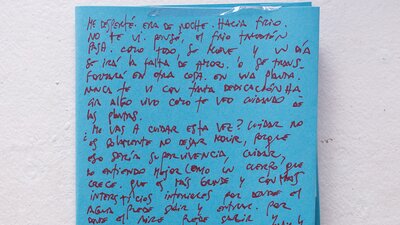 ME DESPERTÉ. ERA DE NOCHE. HACÍA FRÍO.
NO TE VI. PENSÉ. EL FRÍO TAMBIÉN
PASA. COMO TODO, SE MUEVE Y UN DÍA
SE IRÁ LA FALTA DE AMOR. O SE TRANS
FORMARÁ EN OTRA COSA. EN UNA PLANTA.
NUNCA TE VI CON TANTA DEDICACIÓN HA
CIA ALGO VIVO COMO TE VEO CUIDANDO DE
LAS PLANTAS.
¿ME VAS A CUIDAR ESTA VEZ? CUIDAR NO
ES SOLAMENTE NO DEJAR MORIR, PORQUE
ESO SERÍA SUPERVIVENCIA, CUIDAR,
LO ENTIENDO MEJOR COMO UN CUERPO QUE
CRECE. QUE ES MÁS GRANDE Y CON MÁS
INTERSTICIOS INTERIORES POR DONDE EL
AGUA PUEDE SALIR Y ENTRAR. POR
DONDE EL AIRE PUEDE SALIR Y